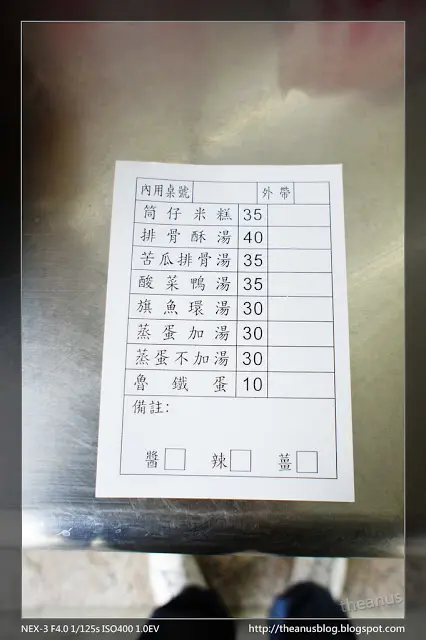 內用桌號 外帶
筒仔米糕 35
排骨酥湯 40
苦瓜排骨湯 35
酸菜鴨湯 35
旗魚環湯 30
蒸蛋加湯 30
蒸蛋不加湯 30
魯鐵蛋 10
備註:
醬 辣 薑
theanus
NEX-3 F4.0 1/125s ISO400 1.0EV http://theanusblog.blogspot.com